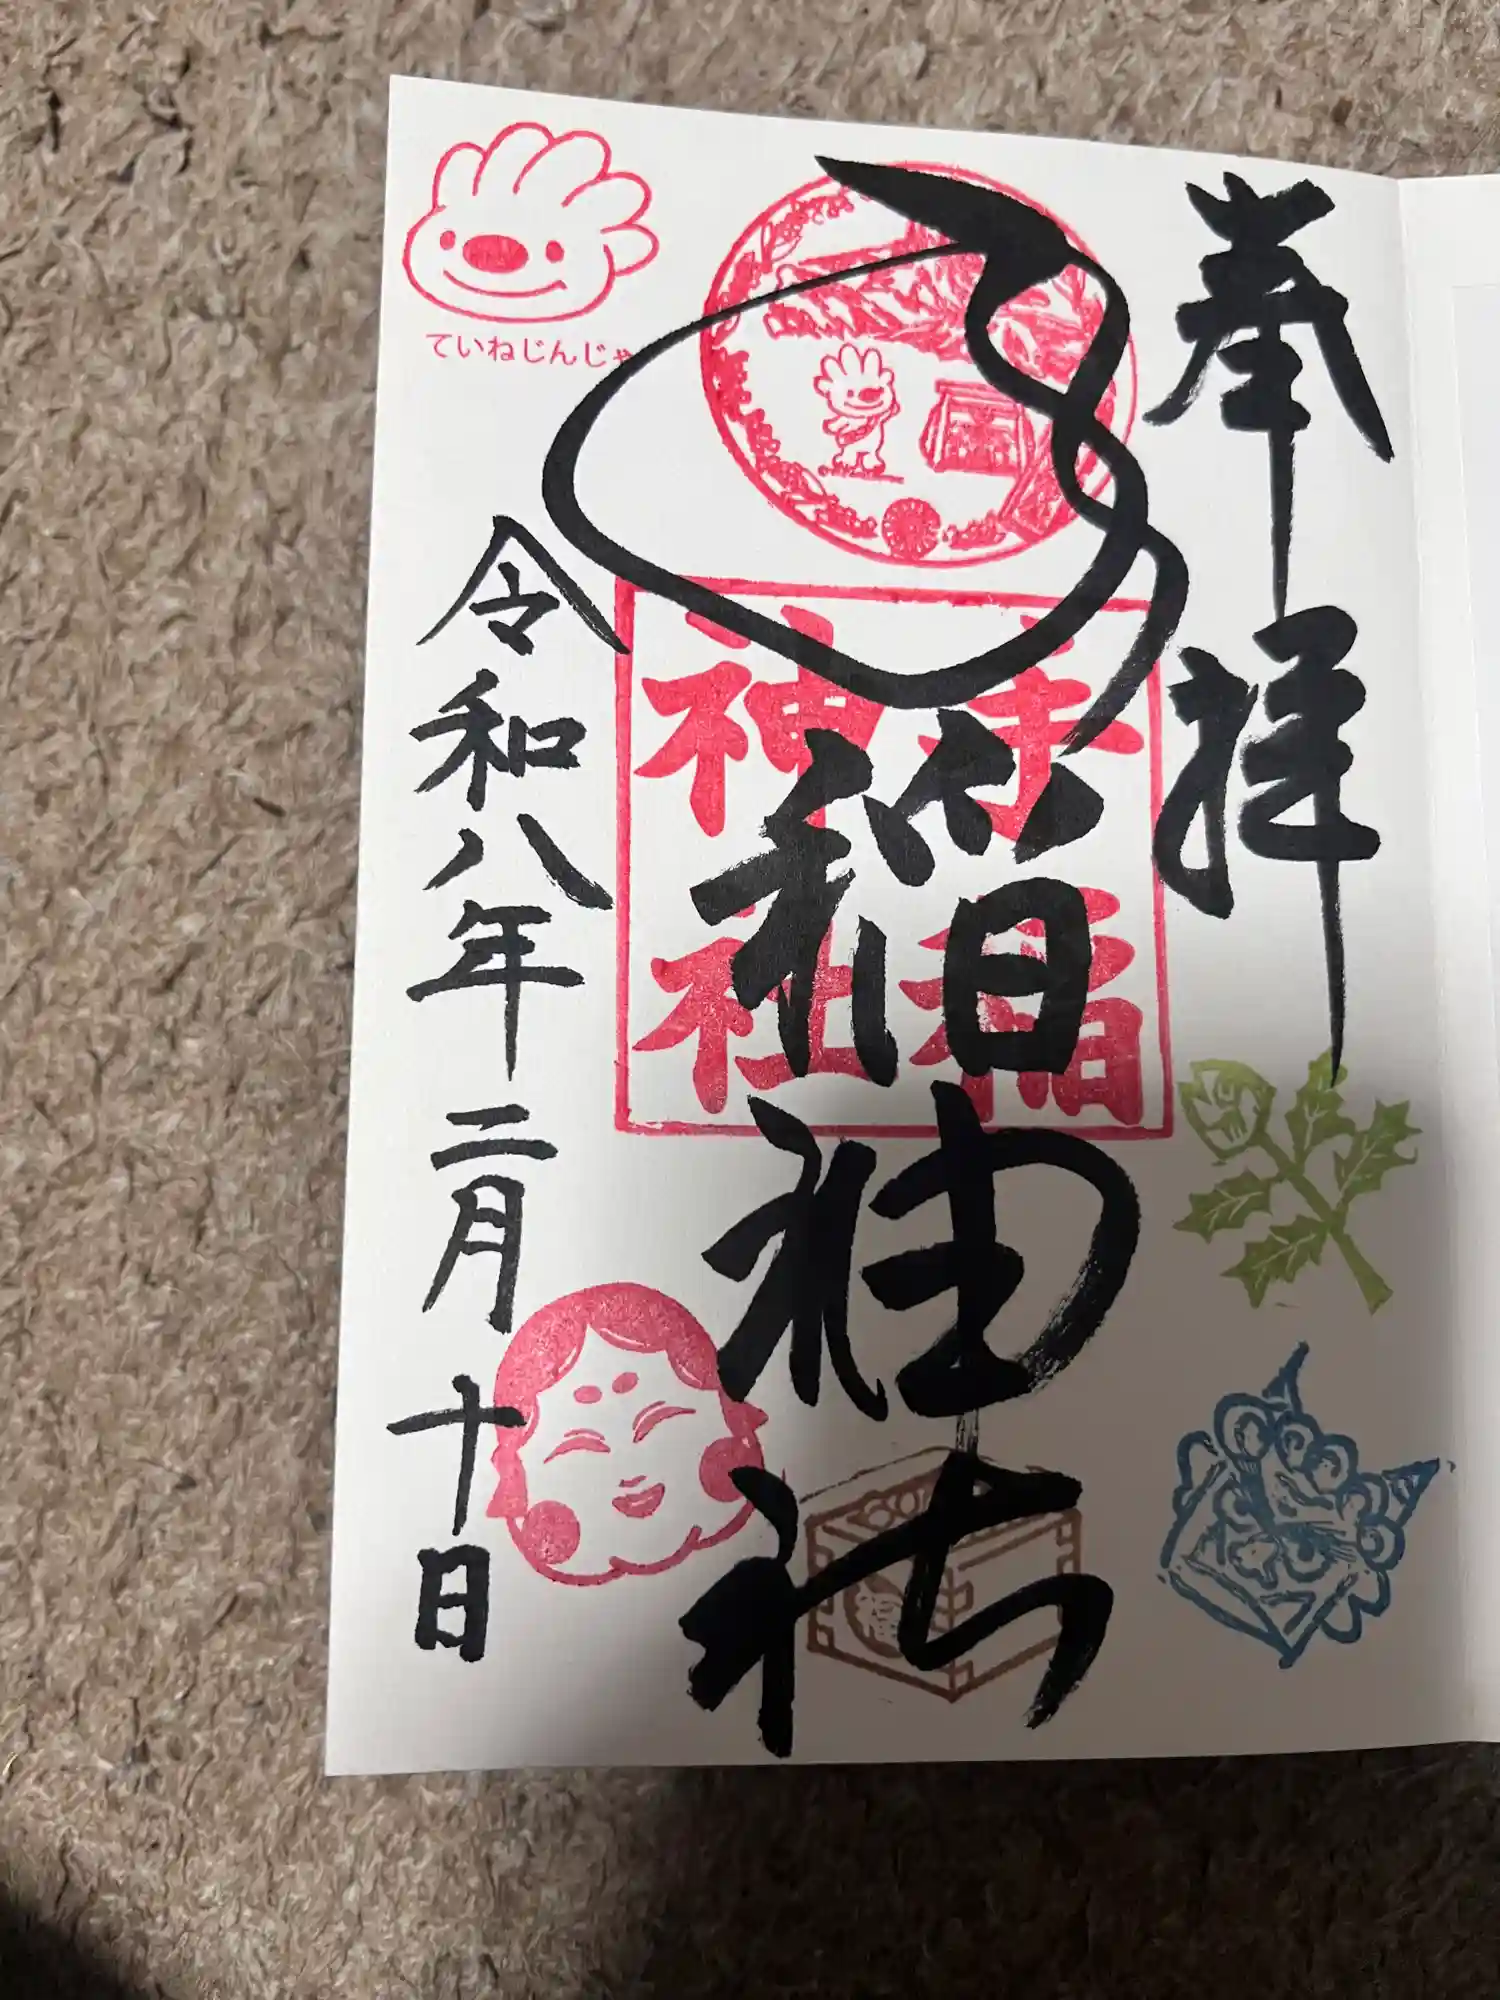 奉拝
手稲神社
手稲
神社
ていねじんじゃ
令和八年二月十日
福